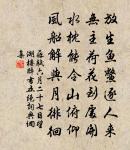 放生魚鱉逐人來
無主荷花到處開
水枕能令山俯仰
風船解與月徘徊
蘇軾六月二十七日望
湖樓醉書五絕詞典網
集